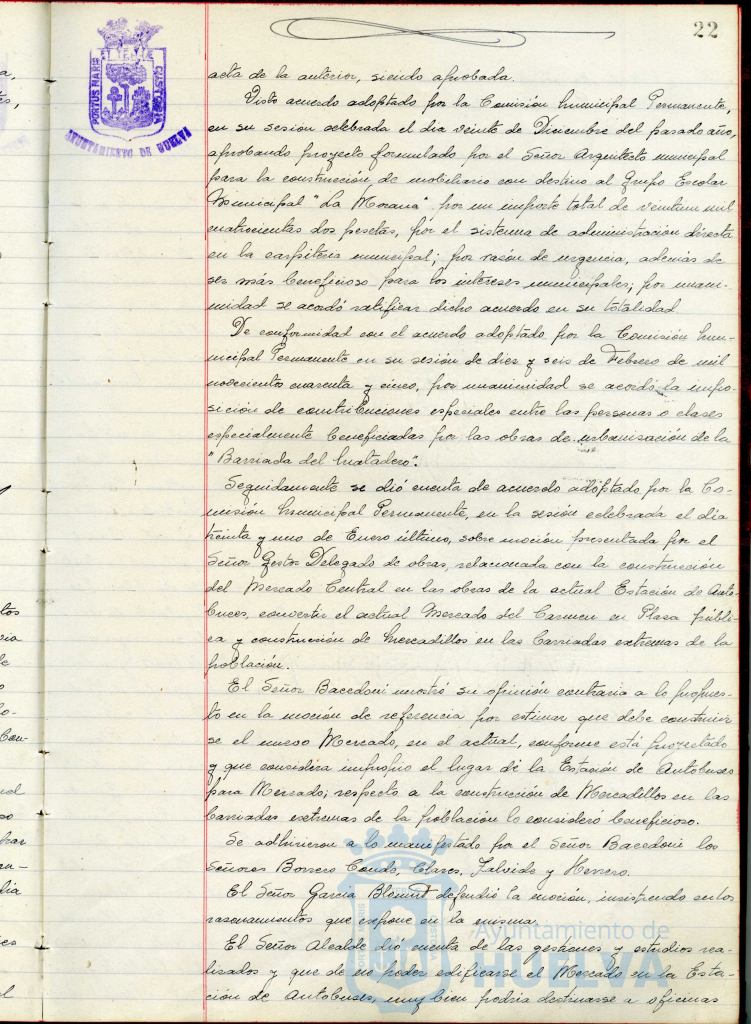 22
PORTUS MARIS ET TERRAE CUSTODIA
AYUNTAMIENTO DE HUELVA
acta de la anterior, siendo aprobada.
Visto acuerdo adoptado por la Comisión Municipal Permanente,
en su sesión celebrada el dia veinte de Diciembre del pasado año,
aprobando proyecto formulado por el Señor Arquitecto municipal
para la construcción de mobiliario con destino al Grupo Escolar
Municipal "La Morana" por un importe total de veintiun mil
cuatrocientas dos pesetas, por el sistema de administración directa
en la carpiteria municipal; por razón de urgencia, además de
ser más beneficioso para los intereses municipales; por unani-
midad se acordó ratificar dicho acuerdo en su totalidad
De conformidad con el acuerdo adoptado por la Comisión Mu-
nicipal Permanente en su sesión de diez y seis de Febrero de mil
novecientos cuarenta y cinco, por unanimidad se acordó la impo-
sición de contribuciones especiales entre las personas o clases
especialmente beneficiadas por las obras de urbanización de la
"Barriada del Matadero".
Seguidamente se dió cuenta de acuerdo adoptado por la Co-
misión Municipal Permanente, en la sesión celebrada el día
treinta y uno de Enero último, sobre moción presentada por el
Señor Gestor Delegado de obras, relacionada con la construcción
del Mercado Central en las obras de la actual Estación de Auto-
buses, convertir el actual Mercado del Carmen en Plaza públi-
ca y construcción de Mercadillos en las barriadas extremas de la
población.
El Señor Bacedoni mostró su opinión contraria a lo propues-
to en la moción de referencia por estimar que debe construir-
se el nuevo Mercado, en el actual, conforme está proyectado
y que considera impropio el lugar de la Estación de Autobuses
para Mercado; respecto a la construcción de Mercadillos en las
barriadas extremas de la población lo considero beneficioso.
Se adhirieron a lo manifestado por el Señor Bacedoni los
Señores Borrero Conde, Clares, Zalvide y Herrero.
El Señor Garcia defendió la moción, insistiendo en los
razonamientos que expone en la misma.
El Señor Alcalde dió cuenta de las gestiones y estudios rea-
lizados y que de no poder edificarse el Mercado en la Esta-
ción de Autobuses, muy bien podria destinarse a oficinas
Ayuntamiento de
HUELVA